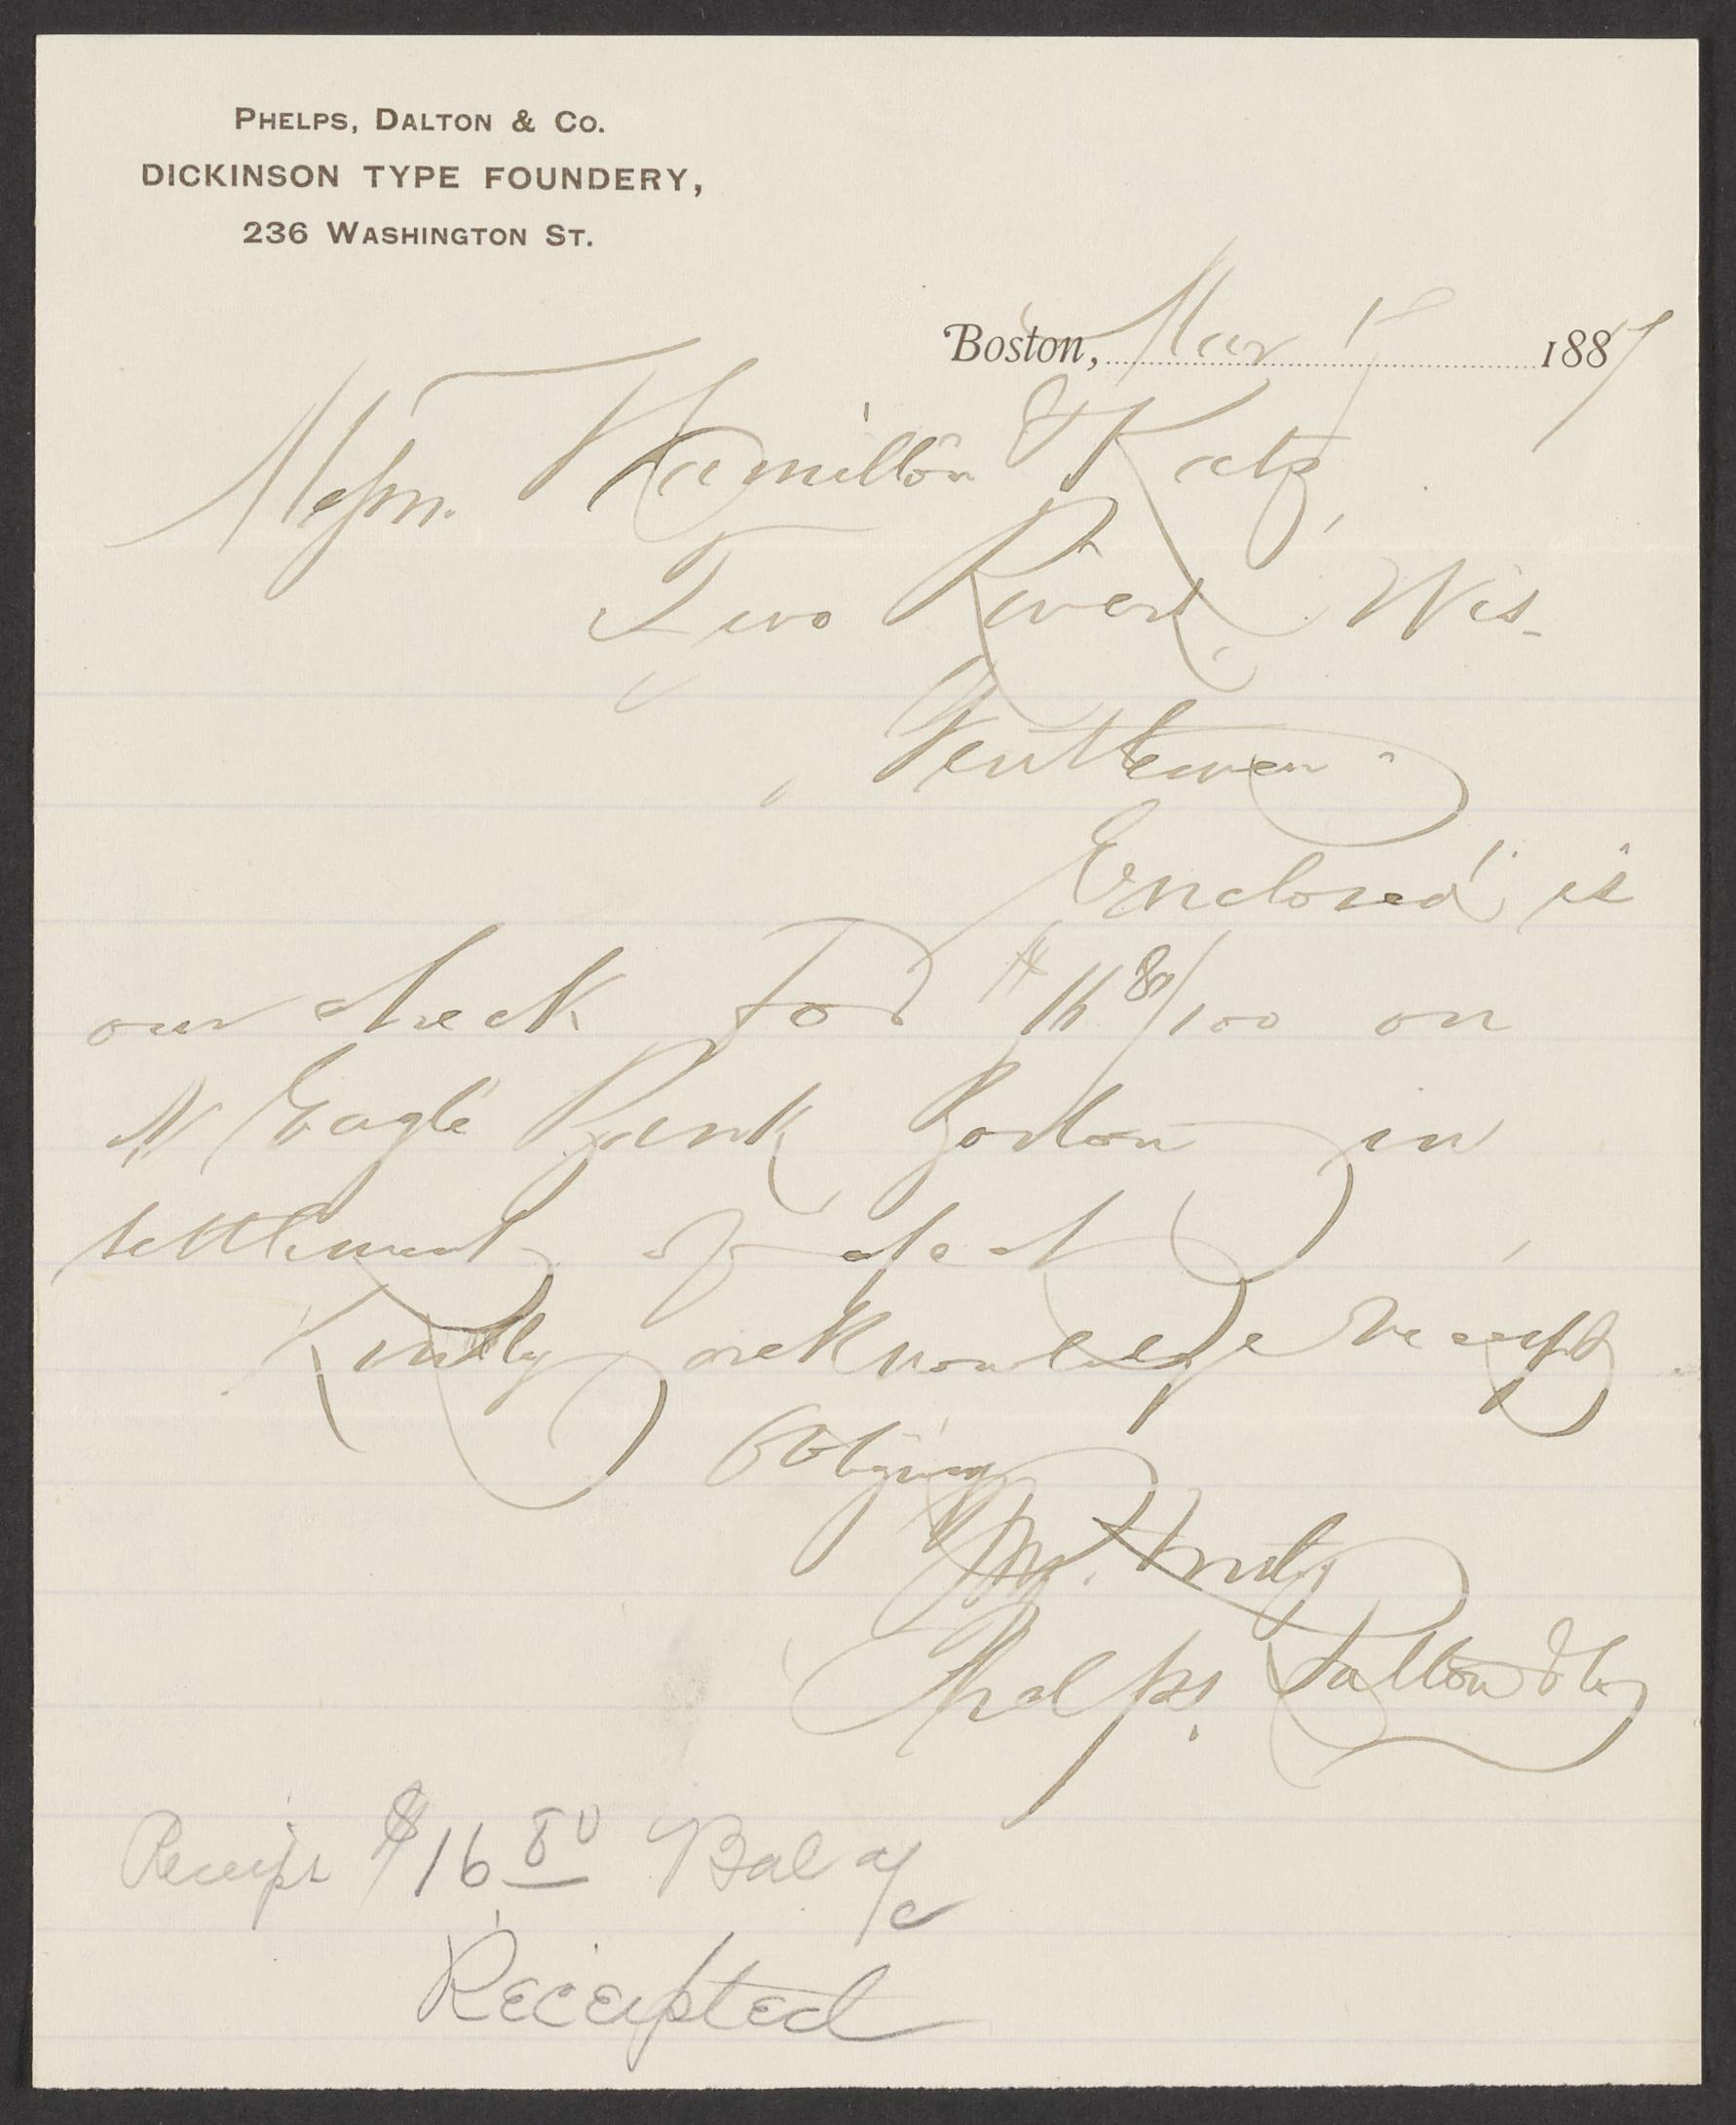 PHELPS, DALTON & CO.
DICKINSON TYPE FOUNDERY,
236 WASHINGTON ST.
Boston, Mar 17 1887
Messrs. Hamilton & Katz,
Two Rivers, Wis.
Gentlemen
Enclosed is
our check for $16 80/100 on
N Eagle Bank Boston in
settlement of acct
Kindly acknowledge receipt
Obliging
Yrs. Truly
Phelps, Dalton & Co
Receipt $16 80 Bal a/c
Receipted